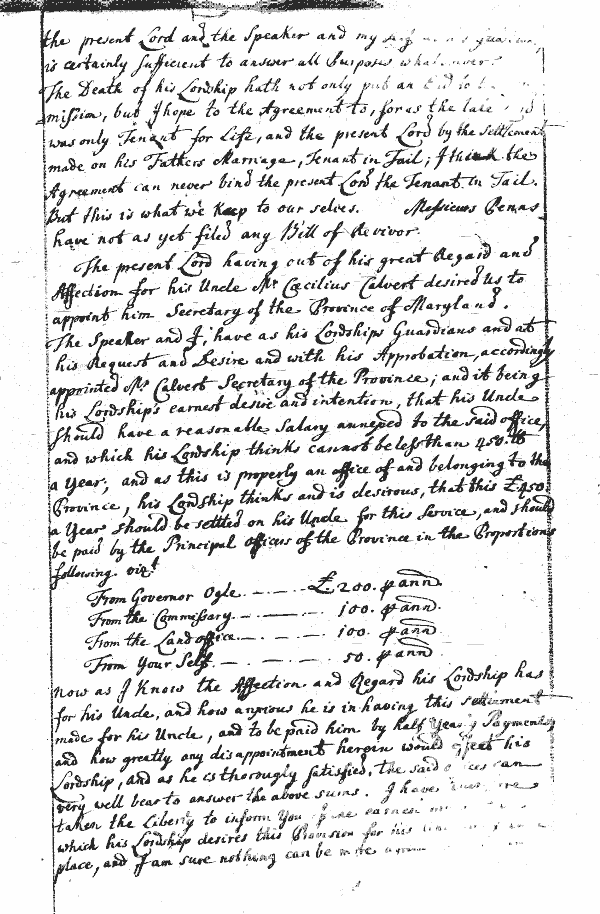 the present Lord and the Speaker and my self as his Guardians,
is certainly sufficient to answer all Purposes whatsoever.
The Death of his Lordship hath not only put an End to
mission, but I hope to the Agreement to, for as the late
was only Tenant for Life, and the present Lord by the Settlement
made on his Fathers Marriage, Tenant in Tail; I think the
Agreement can never bind the present Lord the Tenant in Tail.
But this is what we keep to our selves. Messieurs Penns
have not as yet filed any Bill of Revivor.
The present Lord having out of his great Regard and
Affection for his Uncle Mr. Cœcilius Calvert desired us to
appoint him Secretary of the Province of Maryland.
The Speaker and I, have as his Lordships Guardians and at
his Request and Desire and with his Approbation, accordingly
appointed Mr. Calvert Secretary of the Province; and it being
his Lordship's earnest desire and intention, that his Uncle
should have a reasonable Salary annexed to the said office,
and which his Lordship thinks cannot be less than 450.lb
a year; and as this is properly an office of and belonging to the
Province, his Lordship thinks and is desirous, that this £450.
a Year should be settled on his Uncle for this Service, and should
be paid by the Principal officers of the Province in the Proportions
following vizt.
From Governor Ogle. £200. ⅌ ann
From the Commissary. 100. ⅌ ann.
From the Land office. 100 ⅌ ann
From Your Self. 50. ⅌ ann
Now as I know the Affection and Regard his Lordship has
for his Uncle, and how anxious he is in having this settlement
made for his Uncle, and to be paid him by half Yearly Payments,
and how greatly any disappointment herein would affect his
Lordship, and as he is thorougly satisfied, the said offices can
very well bear to answer the above sums. I have
taken the Liberty to inform You earnest
which his Lordship desires this Provision for his
place, and I am sure nothing can be more